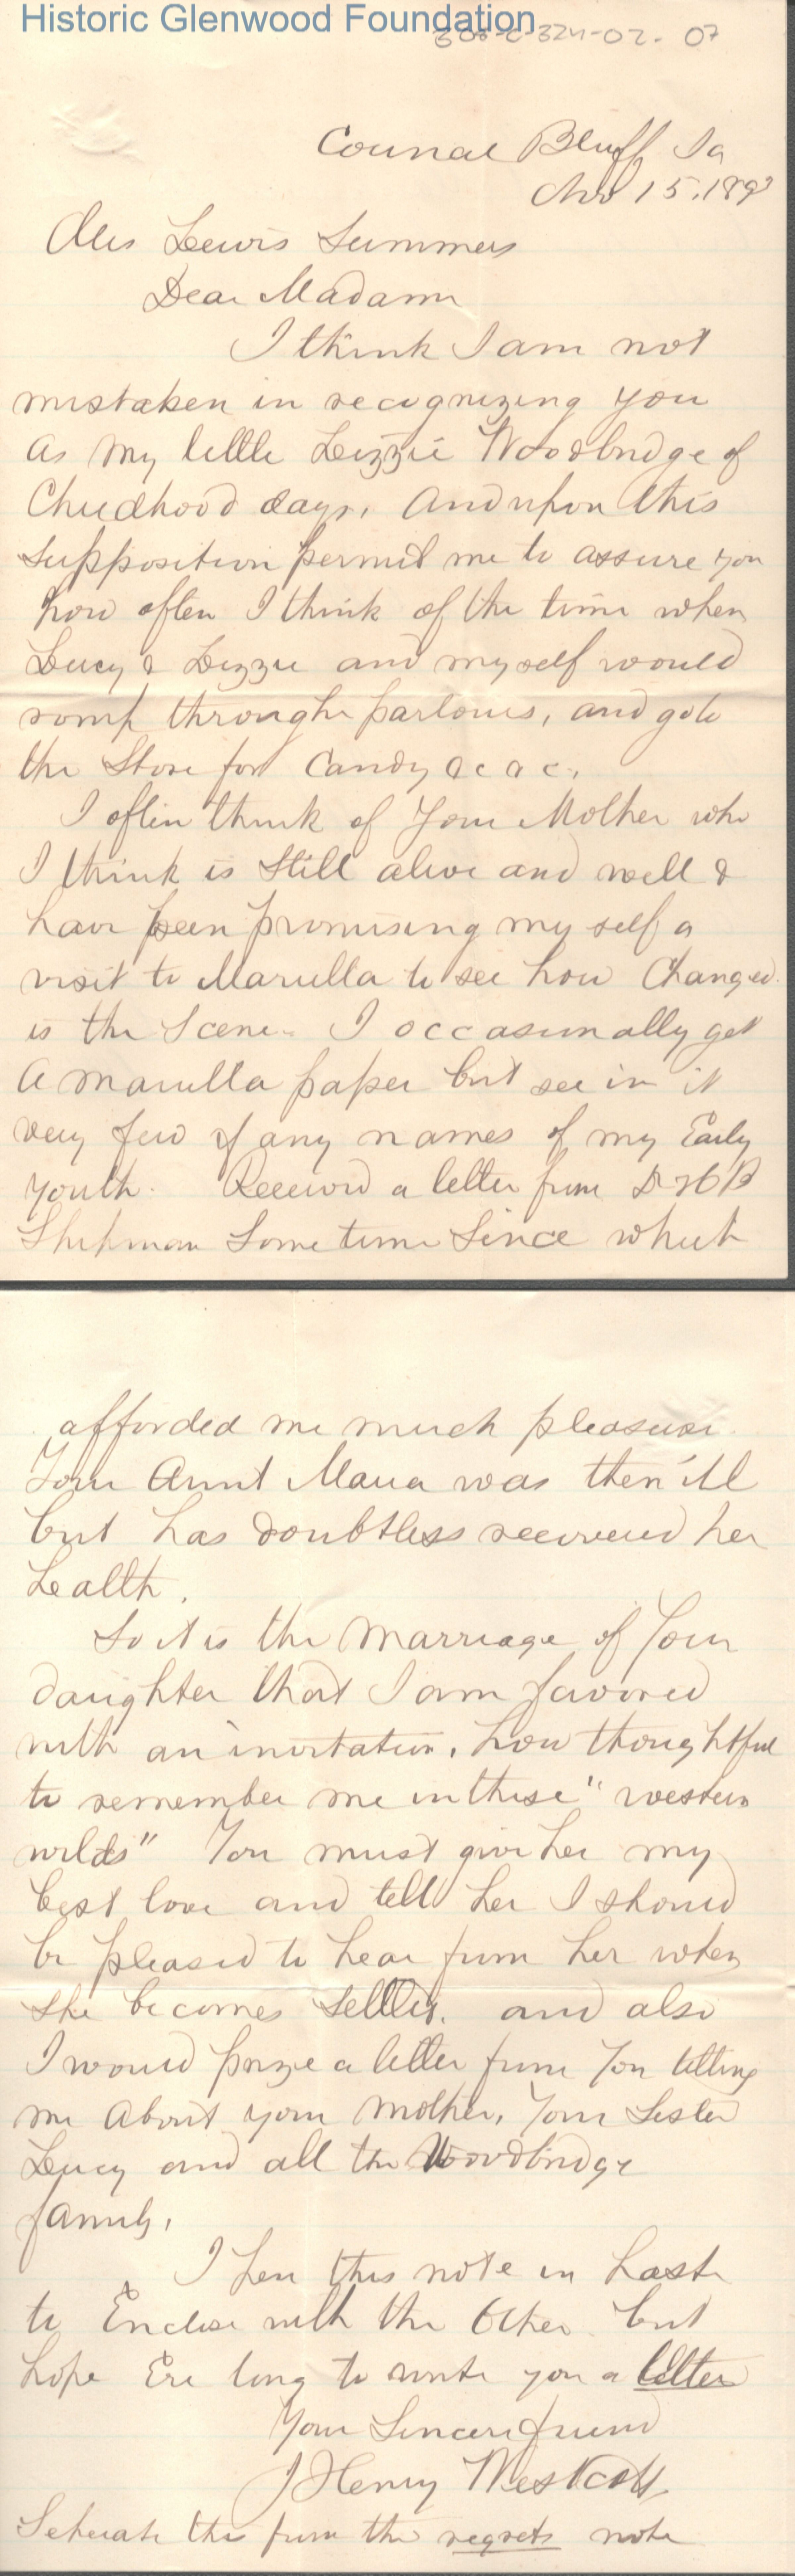 Historic Glenwood Foundation
308-C-324-02-07
Council Bluff Ia
Nov 15. 189
Mrs Lewis Summers
Dear Madam
I think I am not
mistaken in recognizing you
as my little Lizzie Woodbridge of
Childhood days, And upon this
supposition permit me to assure you
how often I think of the time when
Lucy & Lizzie and myself would
romp through parlours, and go to
the Store for Candy &c &c.
I often think of Your Mother who
I think is still alive and well &
have been promising my self a
visit to Marietta to see how Changed
is the Scene. I occasionally get
a Marietta paper but see in it
very few if any names of my Early
Youth. Received a letter from
Shipman Sometime Since which
afforded me much pleasure.
Your Aunt Maria was then ill
but has doubtless recovered her
health.
So it is the Marriage of Your
daughter that I am favored
with an invitation, how thoughtful
to remember me in these "western
wilds" You must give her my
best love and tell her I should
be pleased to hear from her when
she becomes settled. and also
I would prize a letter from You telling
me About your Mother, Your Sister
Lucy and all the Woodbridge
family.
I pen this note in haste
to Enclose with the Other but
hope Ere long to write you a letter
Your Sincere friend
J Henry Westcott
Seperate this from the regrets note